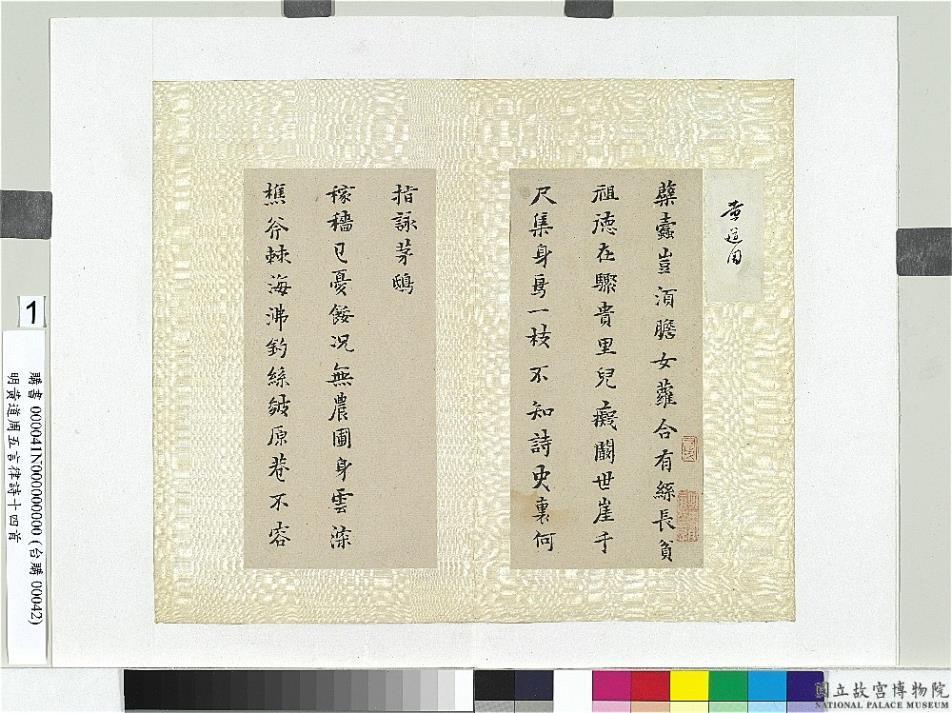 黃道周
蘗蠹豈須膽女蘿合有絲長貧
祖德在驟貴里兒癡闊世崖千
尺集身烏一枝不知詩史裏何
指詠茅鴟
稼穡已憂餒況無農圃身雲深
樵斧棘海沸釣絲皴原巷不容
1
購書 000041N000000000 (台購 00042)
明黃道周五言律詩十四首
國立故宮博物院
NATIONAL PALACE MUSEUM